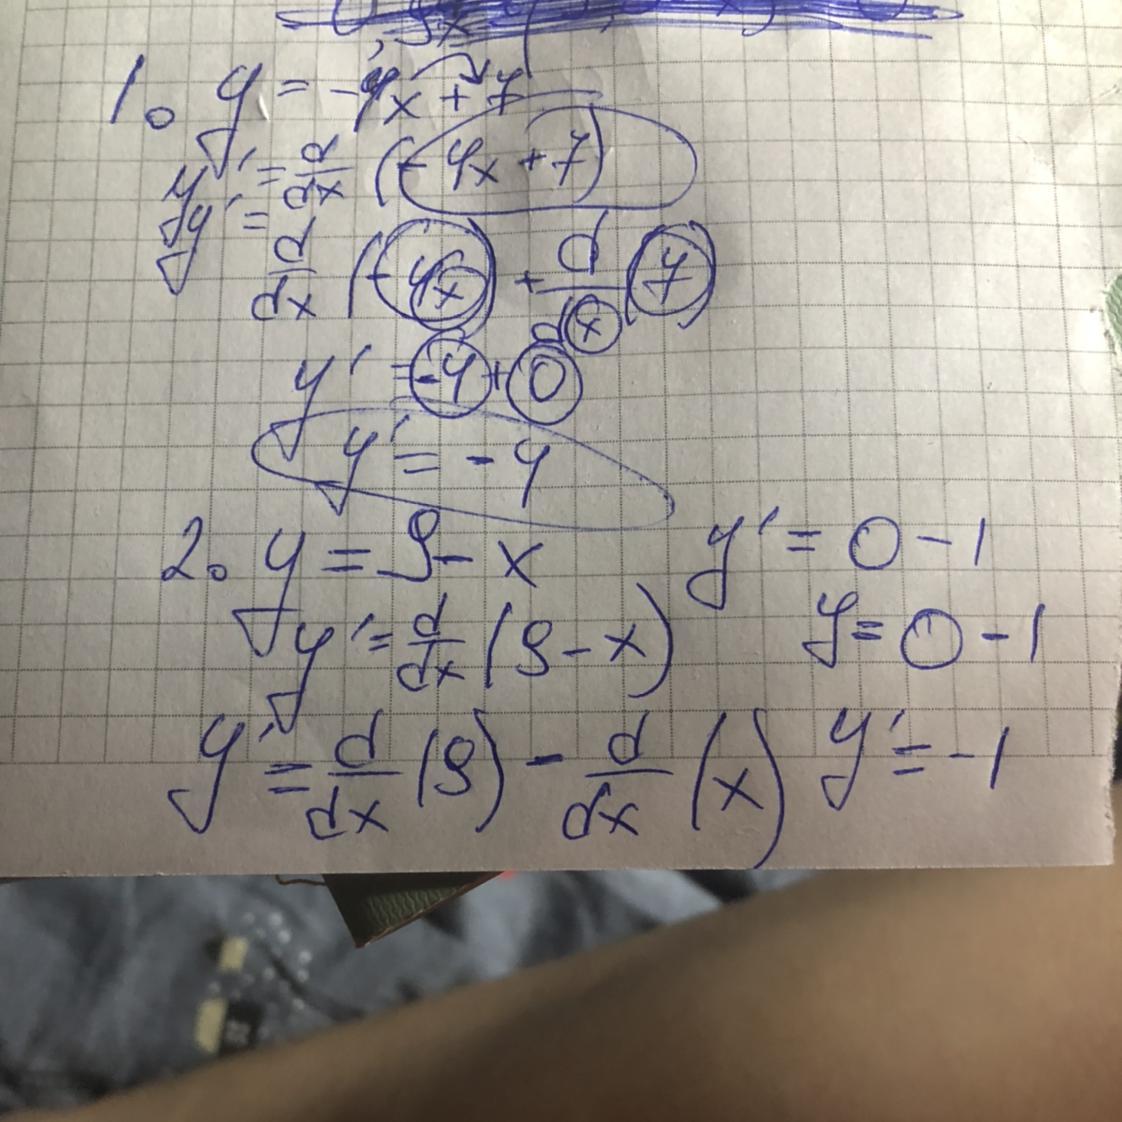 1. y = -4x + 7
y' = d/dx (-4x + 7)
y' = d/dx (-4x) + d/dx (7)
y' = -4 + 0
y' = -4
2. y = 9 - x
y' = d/dx (9 - x)
y' = d/dx (9) - d/dx (x)
y' = 0 - 1
y = 0 - 1
y' = -1